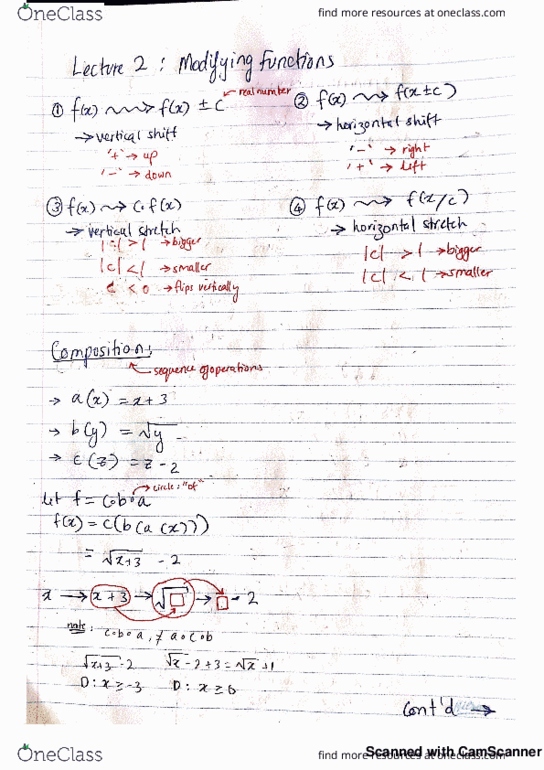 OneClass
find more resources at oneclass.com
Lecture 2 : Modifying functions
① f(x) ⇝ f(x) ± c
real number
→ vertical shift
'+' → up
'-' → down
② f(x) ⇝ f(x±c)
→ horizontal shift
'-' → right
'+' → left
③ f(x) ⇝ c.f(x)
→ vertical stretch
|c| > 1 → bigger
|c| < 1 → smaller
c < 0 → flips vertically
④ f(x) ⇝ f(x/c)
→ horizontal stretch
|c| > 1 → bigger
|c| < 1 → smaller
Composition:
sequence of operations
→ a(x) = x+3
→ b(y) = √y
→ c(z) = z-2
circle: "of"
let f = c∘b∘a
f(x) = c(b(a(x)))
= √x+3 - 2
x → x+3 → √□ → □ - 2
note: c∘b∘a ≠ a∘c∘b
√x+3 -2 √x -2+3 = √x +1
D: x ≥ -3 D: x ≥ 0
Cont'd →
OneClass
find more resources at oneclass.com
Scanned with CamScanner